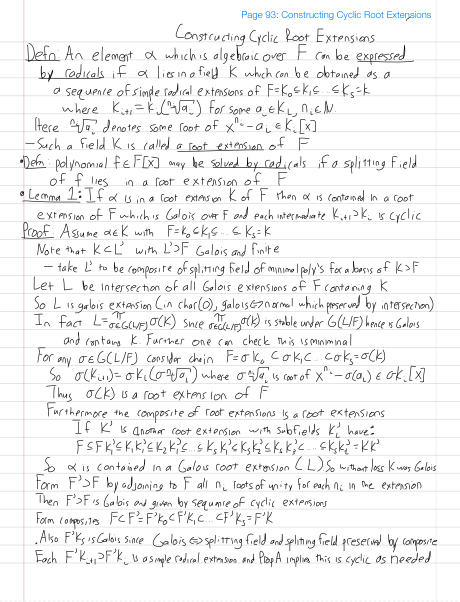 Page 93: Constructing Cyclic Root Extensions
Constructing Cyclic Root Extensions
Defn: An element α which is algebraic over F can be expressed
by radicals if α lies in a field K which can be obtained as a
a sequence of simple radical extensions of F=K₀⊆K₁⊆...⊆Kₛ=K
where Kᵢ₊₁=Kᵢ(ⁿⁱ√aᵢ) for some aᵢ∈Kᵢ, nᵢ∈ℕ
Here ⁿⁱ√aᵢ denotes some root of x^nᵢ-aᵢ∈Kᵢ[x]
- Such a field K is called a root extension of F
• Defn: polynomial f∈F[x] may be solved by radicals if a splitting field
of f lies in a root extension of F
• Lemma 1: If α is in a root extension K of F then α is contained in a root
extension of F which is Galois over F and each intermediate Kᵢ₊₁⊃Kᵢ is cyclic
Proof: Assume α∈K with F=K₀⊆K₁⊆...⊆Kₛ=K
Note that K⊂L' with L'⊃F Galois and finite
- take L' to be composite of splitting field of minimal poly's for a basis of K⊃F
Let L be intersection of all Galois extensions of F containing K
So L is galois extension (in char(0), galois⇔normal which preserved by intersection)
In fact L=∏σ∈G(L/F) σ(K) since ∏σ∈G(L/F) σ(K) is stable under G(L/F) hence is Galois
and contains K. Further one can check this is minimal
For any σ∈G(L/F) consider chain F=σK₀⊂σK₁⊂...⊂σKₛ=σ(K)
So σ(Kᵢ₊₁)=σKᵢ(σⁿⁱ√aᵢ) where σⁿⁱ√aᵢ is root of x^nᵢ-σ(aᵢ)∈σKᵢ[x]
Thus σ(K) is a root extension of F
Furthermore the composite of root extensions is a root extensions
If K' is another root extension with subfields Kᵢ' have:
F⊆FK₁'⊆K₁K₁'⊆K₂K₁'⊆...⊆KₛK₁'⊆KₛK₂'⊆KₛK₃'⊆...⊆KₛKₜ'=KK'
So α is contained in a Galois root extension (L) so without loss K was Galois
Form F'⊃F by adjoining to F all nᵢ roots of unity for each nᵢ in the extension
Then F'⊃F is Galois and given by sequence of cyclic extensions
Form composites F⊂F'=F'K₀⊂F'K₁⊂...⊂F'Kₛ=F'K
. Also F'Kₛ is Galois since Galois⇔splitting field and splitting field preserved by composite
Each F'Kᵢ₊₁⊃F'Kᵢ is a simple radical extension and Prop A implies this is cyclic as needed